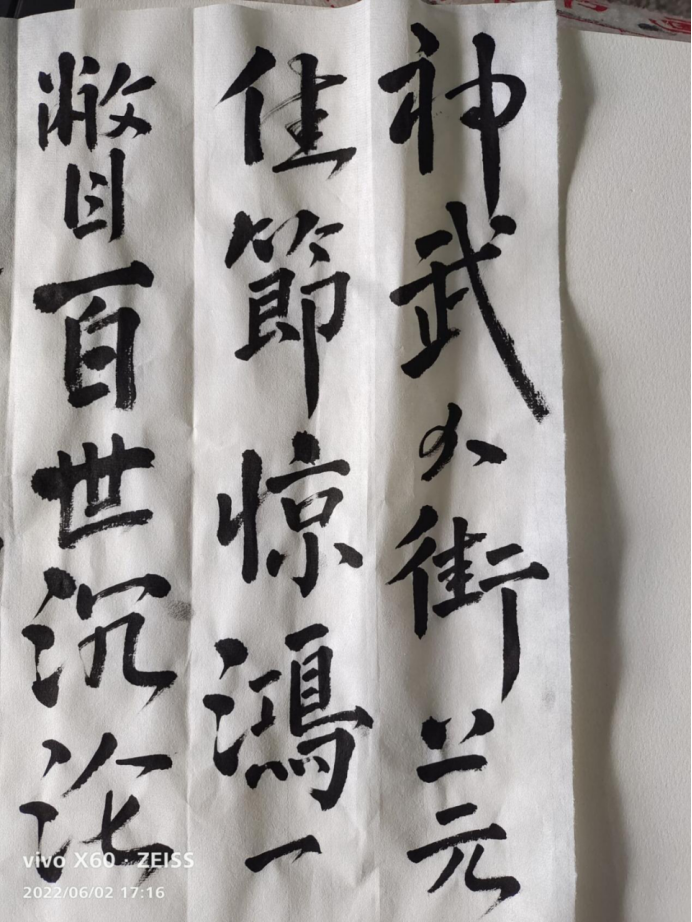 神武大街上元
佳節惊鴻一
瞥百世沉沦
vivo X60 · ZEISS
2022/06/02 17:16